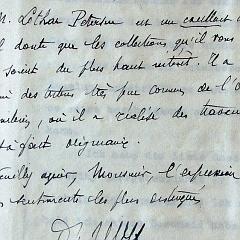 M. Lothar Petersen est un excellent
il doute que les collections qu'il vous
soient du plus haut intérêt. Il a
des tribus très peu connues de l'O
, où il a réalisé des travaux
fort originaux.
agréer, Monsieur, l'expression
sentiments les plus distingués